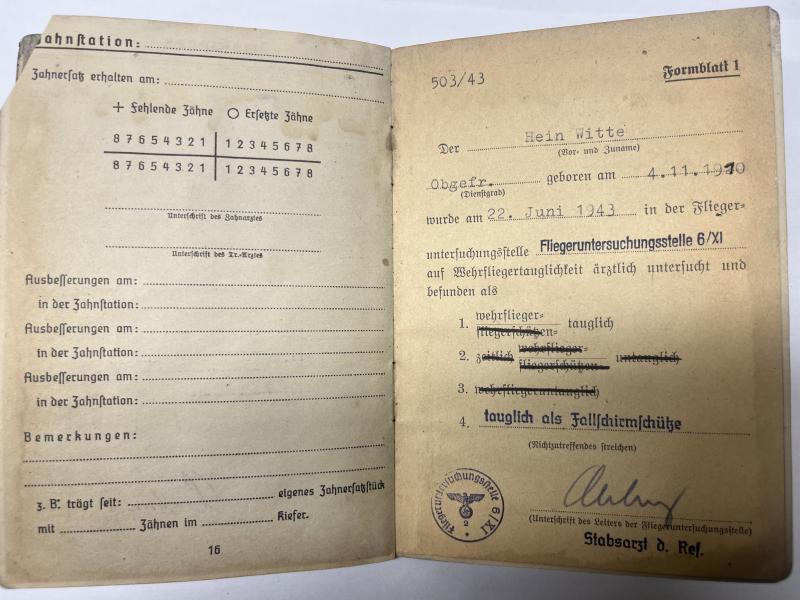 Zahnstation:
Zahnersatz erhalten am:
+ Fehlende Zähne ○ Ersetzte Zähne
8 7 6 5 4 3 2 1 1 2 3 4 5 6 7 8
8 7 6 5 4 3 2 1 1 2 3 4 5 6 7 8
Unterschrift des Zahnarztes
Unterschrift des Tr.-Arztes
Ausbesserungen am:
in der Zahnstation:
Ausbesserungen am:
in der Zahnstation:
Ausbesserungen am:
in der Zahnstation:
Bemerkungen:
z. B. trägt seit: eigenes Zahnersatzstück
mit Zähnen im Kiefer.
16
503/43
Formblatt 1
Der Hein Witte
(Vor- und Zuname)
Obgefr. geboren am 4.11.1910
(Dienstgrad)
wurde am 22. Juni 1943 in der Flieger-
untersuchungsstelle Fliegeruntersuchungsstelle 6/XI
auf Wehrfliegertauglichkeit ärztlich untersucht und
befunden als
1. wehrflieger- tauglich
fliegerschützen-
2. zeitlich wehrflieger- untauglich
fliegerschützen-
3. wehrfliegeruntauglich
4. tauglich als Fallschirmschütze
(Nichtzutreffendes streichen)
Fliegeruntersuchungsstelle 6/XI
2
(Unterschrift des Leiters der Fliegeruntersuchungsstelle)
Stabsarzt d. Res.